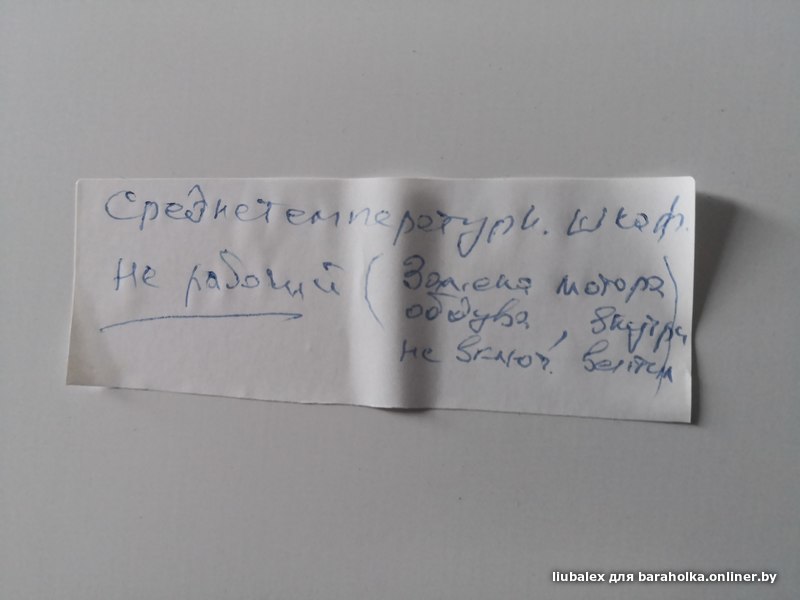 Среднетемпературн. шкаф.
не рабочий (Замена мотора)
обдува, внутри
не включ. вентил
liubalex для baraholka.onliner.by